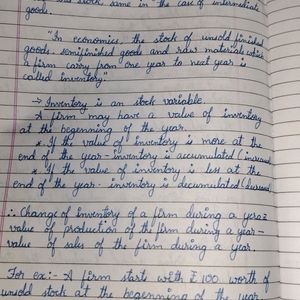 same in the case of intermediate
goods.
"In economics, the stock of unsold finished
goods, semifinished goods and raw materials which
a firm carry from one year to next year is
called inventory"
→ Inventory is an stock variable.
A firm may have a value of inventory
at the beginning of the year.
* If the value of inventory is more at the
end of the year - inventory is accumulated (increased
* If the value of inventory is less at the
end of the year - inventory is decumulated (decreased)
∴ Change of inventory of a firm during a year =
value of production of the firm during a year -
value of sales of the firm during a year.
For ex:- A firm starts with ₹ 100 worth of
unsold stock at the beginning of the year